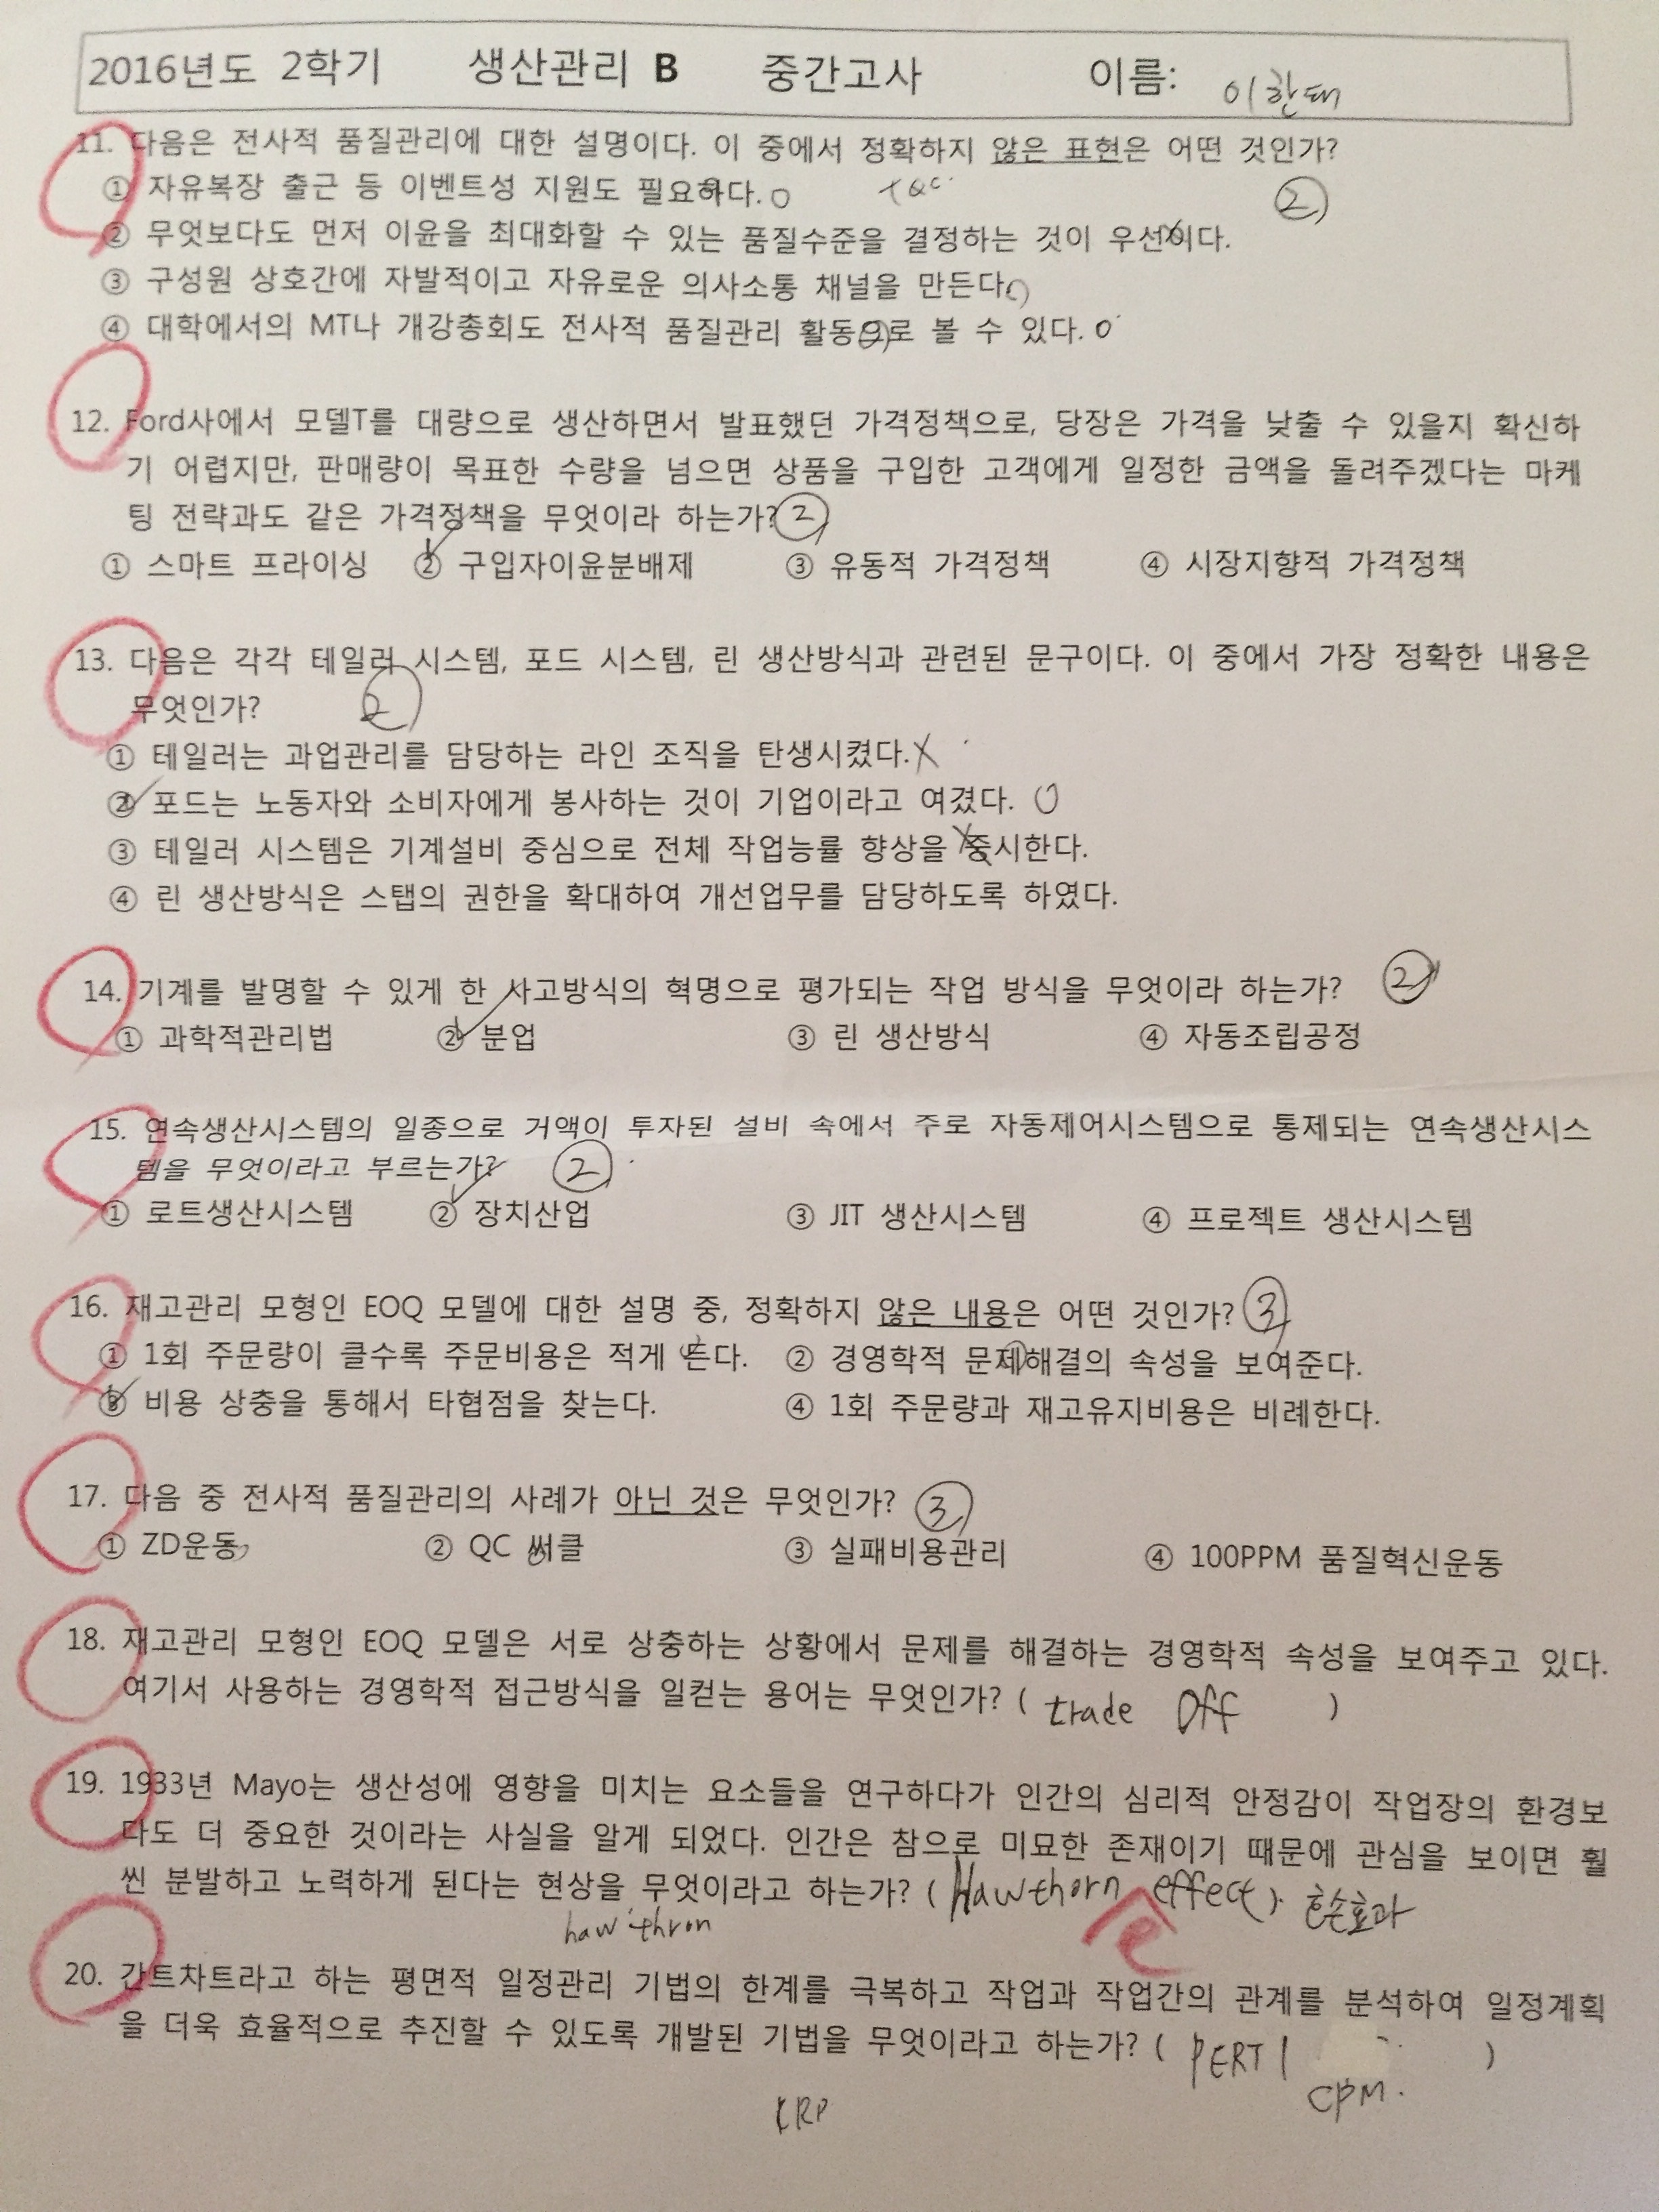 2016년도 2학기 생산관리 B 중간고사 이름: 이한태
11. 다음은 전사적 품질관리에 대한 설명이다. 이 중에서 정확하지 않은 표현은 어떤 것인가?
① 자유복장 출근 등 이벤트성 지원도 필요하다. O TQC ②
② 무엇보다도 먼저 이윤을 최대화할 수 있는 품질수준을 결정하는 것이 우선이다.
③ 구성원 상호간에 자발적이고 자유로운 의사소통 채널을 만든다. O
④ 대학에서의 MT나 개강총회도 전사적 품질관리 활동으로 볼 수 있다. O
12. Ford사에서 모델T를 대량으로 생산하면서 발표했던 가격정책으로, 당장은 가격을 낮출 수 있을지 확신하
기 어렵지만, 판매량이 목표한 수량을 넘으면 상품을 구입한 고객에게 일정한 금액을 돌려주겠다는 마케
팅 전략과도 같은 가격정책을 무엇이라 하는가? ②
① 스마트 프라이싱 ② 구입자이윤분배제 ③ 유동적 가격정책 ④ 시장지향적 가격정책
13. 다음은 각각 테일러 시스템, 포드 시스템, 린 생산방식과 관련된 문구이다. 이 중에서 가장 정확한 내용은
무엇인가? ②
① 테일러는 과업관리를 담당하는 라인 조직을 탄생시켰다. X
② 포드는 노동자와 소비자에게 봉사하는 것이 기업이라고 여겼다. O
③ 테일러 시스템은 기계설비 중심으로 전체 작업능률 향상을 중시한다. X
④ 린 생산방식은 스탭의 권한을 확대하여 개선업무를 담당하도록 하였다.
14. 기계를 발명할 수 있게 한 사고방식의 혁명으로 평가되는 작업 방식을 무엇이라 하는가? ②
① 과학적관리법 ② 분업 ③ 린 생산방식 ④ 자동조립공정
15. 연속생산시스템의 일종으로 거액이 투자된 설비 속에서 주로 자동제어시스템으로 통제되는 연속생산시스
템을 무엇이라고 부르는가? ②
① 로트생산시스템 ② 장치산업 ③ JIT 생산시스템 ④ 프로젝트 생산시스템
16. 재고관리 모형인 EOQ 모델에 대한 설명 중, 정확하지 않은 내용은 어떤 것인가? ③
① 1회 주문량이 클수록 주문비용은 적게 든다. ② 경영학적 문제해결의 속성을 보여준다.
③ 비용 상충을 통해서 타협점을 찾는다. ④ 1회 주문량과 재고유지비용은 비례한다.
17. 다음 중 전사적 품질관리의 사례가 아닌 것은 무엇인가? ③
① ZD운동 ② QC 써클 ③ 실패비용관리 ④ 100PPM 품질혁신운동
18. 재고관리 모형인 EOQ 모델은 서로 상충하는 상황에서 문제를 해결하는 경영학적 속성을 보여주고 있다.
여기서 사용하는 경영학적 접근방식을 일컫는 용어는 무엇인가? ( trade off )
19. 1933년 Mayo는 생산성에 영향을 미치는 요소들을 연구하다가 인간의 심리적 안정감이 작업장의 환경보
다도 더 중요한 것이라는 사실을 알게 되었다. 인간은 참으로 미묘한 존재이기 때문에 관심을 보이면 훨
씬 분발하고 노력하게 된다는 현상을 무엇이라고 하는가? ( Hawthorn effect ). 호손효과
haw thron e
20. 간트차트라고 하는 평면적 일정관리 기법의 한계를 극복하고 작업과 작업간의 관계를 분석하여 일정계획
을 더욱 효율적으로 추진할 수 있도록 개발된 기법을 무엇이라고 하는가? ( PERT / )
CPM.